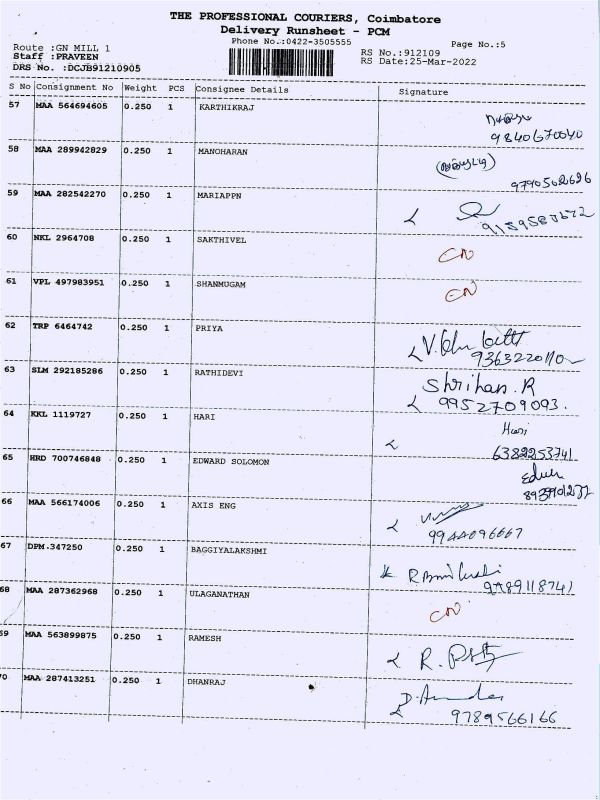 THE PROFESSIONAL COURIERS, Coimbatore
Delivery Runsheet - PCM
Phone No.:0422-3505555
Page No.:5
Route :GN MILL 1
Staff :PRAVEEN
DRS No. :DCJB91210905
RS No.:912109
RS Date:25-Mar-2022
S No Consignment No Weight PCS Consignee Details Signature
57 MAA 564694605 0.250 1 KARTHIKRAJ
58 MAA 289942829 0.250 1 MANOHARAN
59 MAA 282542270 0.250 1 MARIAPPN
60 NKL 2964708 0.250 1 SAKTHIVEL CN
61 VPL 497983951 0.250 1 SHANMUGAM CN
62 TRP 6464742 0.250 1 PRIYA
9363220110
63 SLM 292185286 0.250 1 RATHIDEVI Shrihan.R
9952709093.
64 KKL 1119727 0.250 1 HARI Hari
6382253741
65 HRD 700746848 0.250 1 EDWARD SOLOMON
66 MAA 566174006 0.250 1 AXIS ENG
9944096667
67 DPM 347250 0.250 1 BAGGIYALAKSHMI
9789118741
68 MAA 287362968 0.250 1 ULAGANATHAN CN
69 MAA 563899875 0.250 1 RAMESH
70 MAA 287413251 0.250 1 DHANRAJ
9789566166